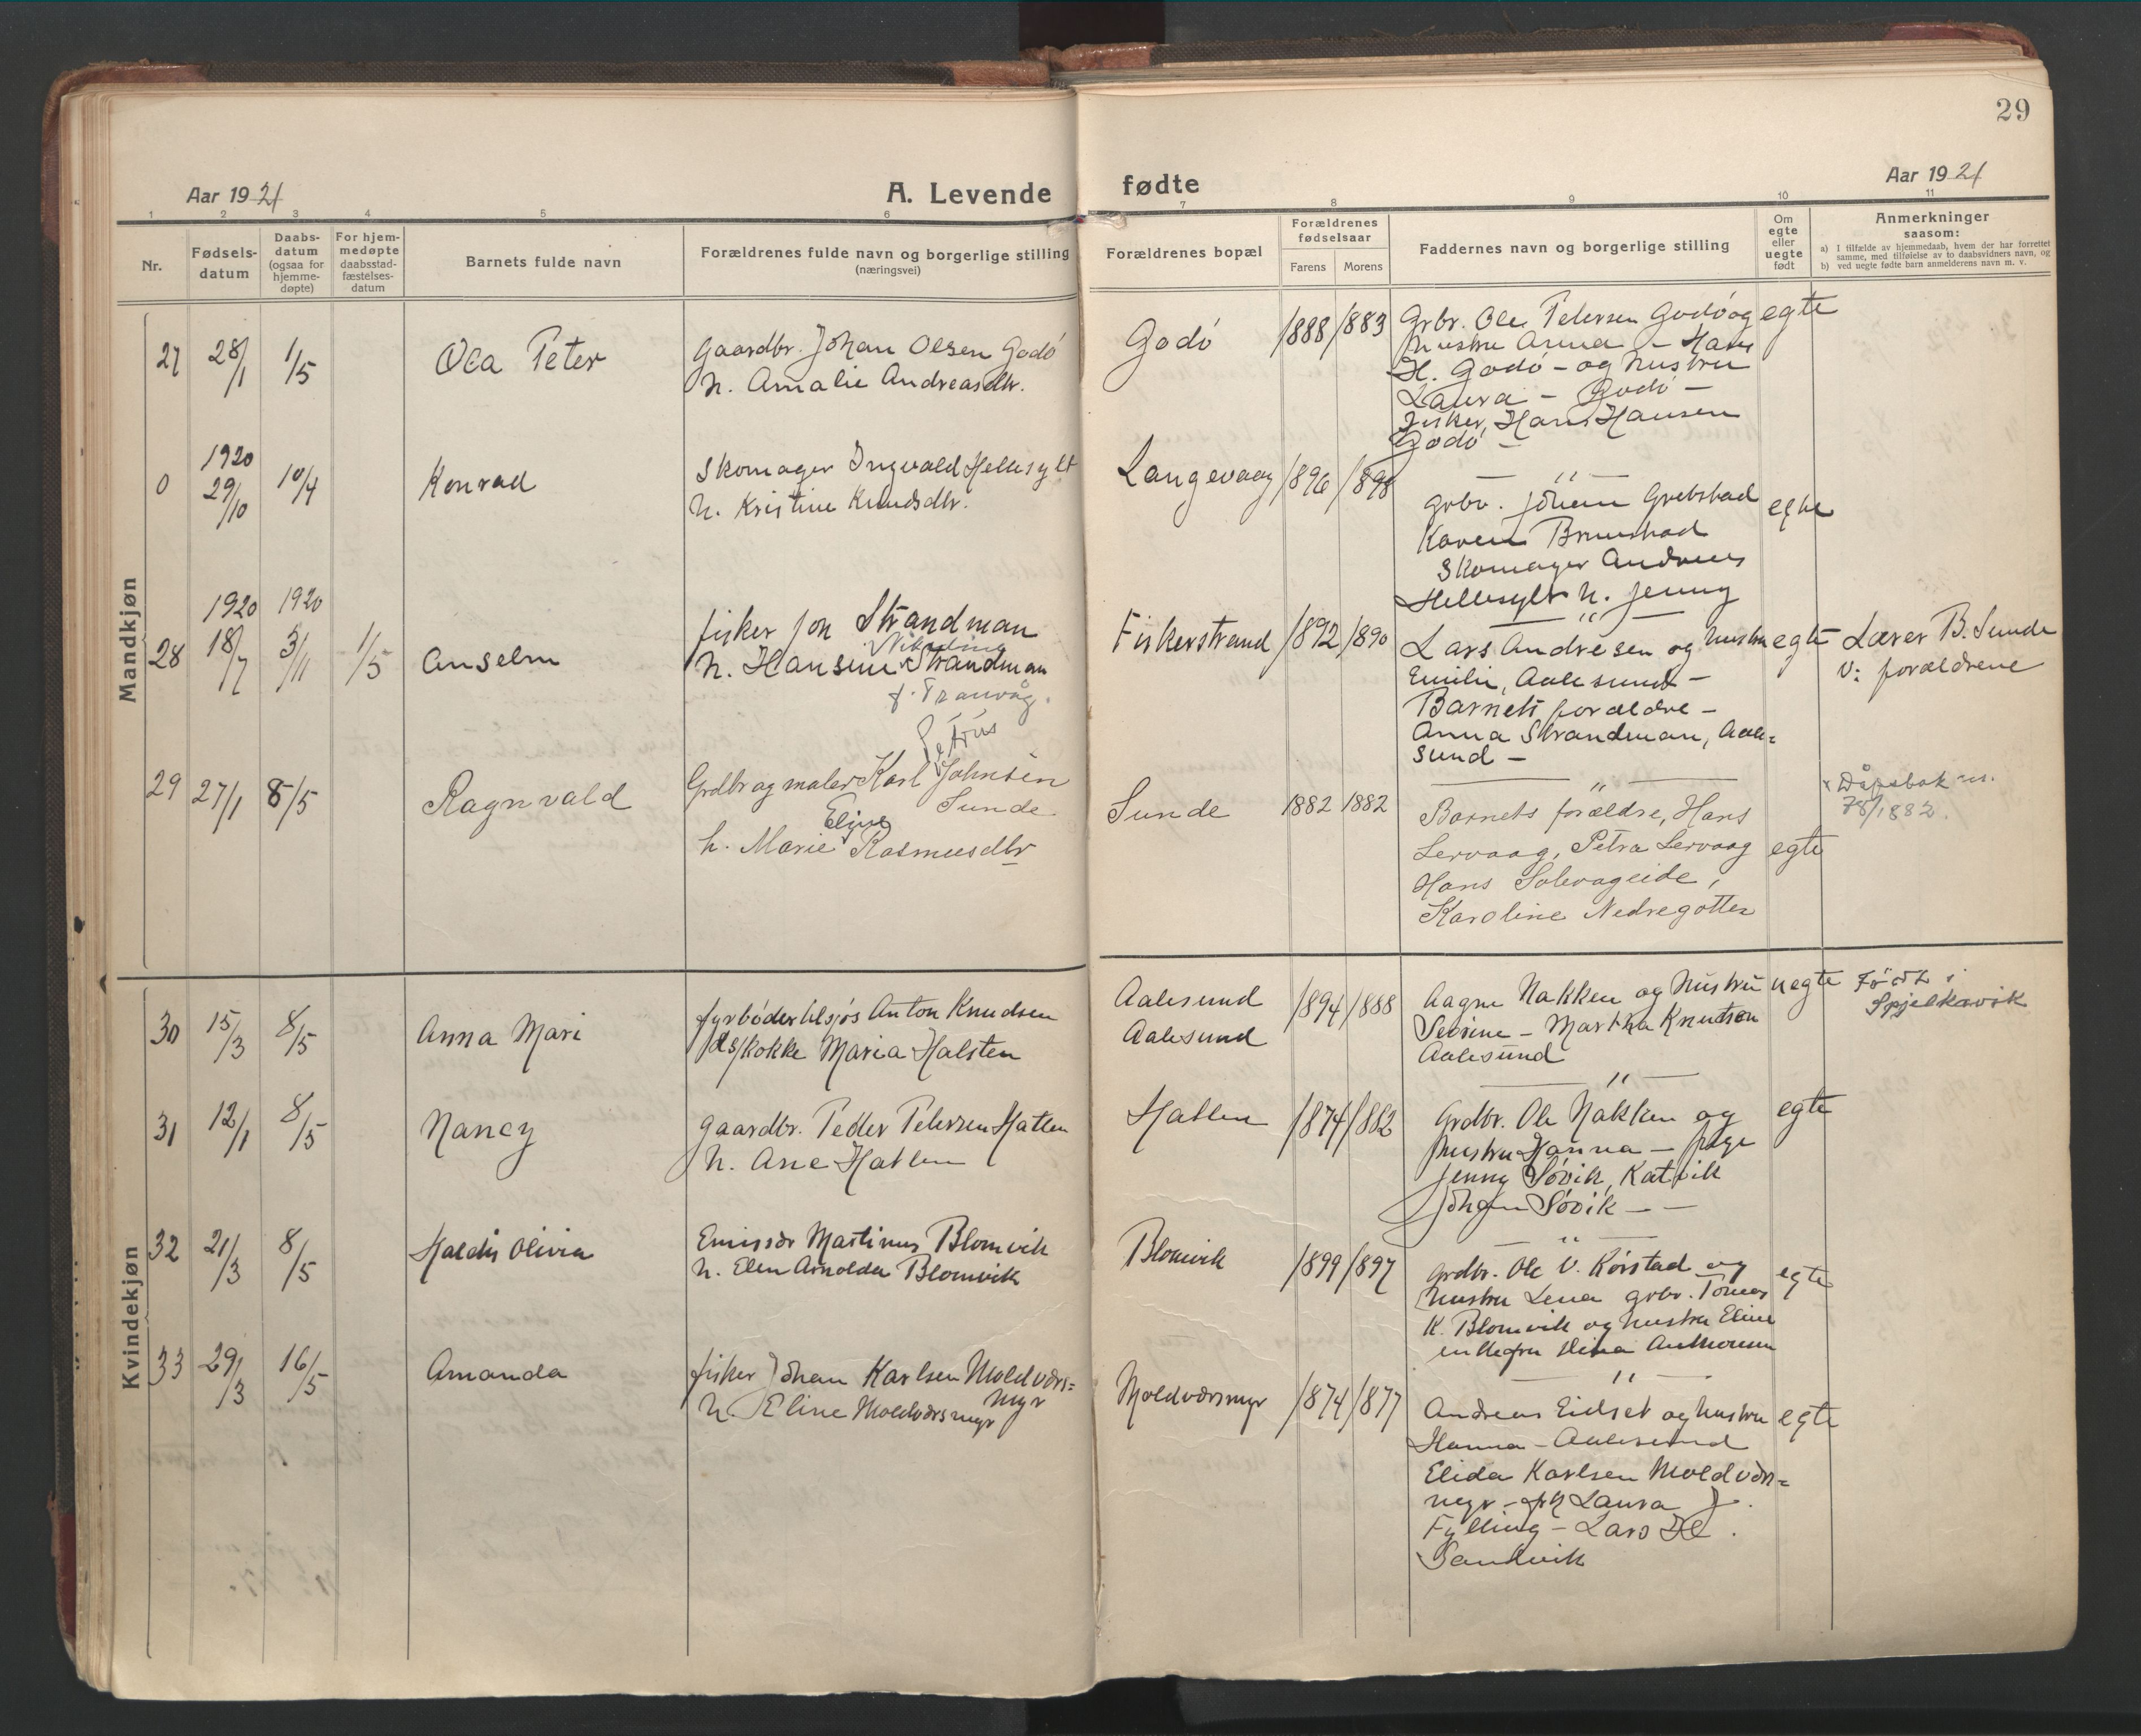 29
Aar 1921
A. Levende
fødte
Aar 1921
1 2 3 4 5 6 7 8 9 10 11
Nr.
Fødsels-
datum
Daabs-
datum
(ogsaa for
hjemme-
døpte)
For hjem-
medøpte
daabsstad-
fæstelses-
datum
Barnets fulde navn
Forældrenes fulde navn og borgerlige stilling
(næringsvei)
Forældrenes bopæl
Forældrenes
fødselsaar
Farens Morens
Faddernes navn og borgerlige stilling
Om
egte
eller
uegte
født
Anmerkninger
saasom:
a) I tilfælde av hjemmedaab, hvem der har forrettet
samme, med tilføielse av to daabsvidners navn, og
b) ved uegte fødte barn anmelderens navn m. v.
Mandkjøn
27 28/1 1/5 Ola Peter
Gaardbr. Johan Olsen Godö
h. Amalie Andreasdtr.
Godö 1888 1883
Grbr. Ole Petersen Godö og
hustru Anna - Hans
H. Godö - og hustru
Laura - Godö -
Fisker, Hans Hansen
Godö -
egte
0 1920
29/10 10/4 Konrad
Skomager Ingvald Hellesylt
h. Kristine Knudsdtr.
Langevaag 1896 1898
— " —
grbr. Johan Grebstad
Karen Brunstad
Skomager Andreas
Hellesylt h. Jenny
egte
28 1920
18/7 1920
3/11 1/5 Anselm
fisker Jon Strandman
Nikoline
h. Hansine Strandman
f. Tranvåg.
Fiskerstrand 1892 1890
— " —
Lars Andresen og hustru
Emilie, Aalesund -
Barnets forældre -
Anna Strandman, Aale=
sund -
egte
Lærer B. Sunde
V: forældrene
29 27/1 8/5 Ragnvald
Petrus
Grdbr og maler Karl Johnsen
Sunde
Eline
h. Marie Rasmusdtr
Sunde 1882 1882
— " —
Barnets forældre, Hans
Lervaag, Petra Lervaag
Hans Solevageide,
Karoline Nedregotten
egte
Dåpsbok nr.
78/1882.
Kvindekjøn
30 15/3 8/5 Anna Mari
fyrbøder tilsjøs Anton Knudsen
ds/kokke Maria Halsten
Aalesund
Aalesund
1894 1888
Aagne Nakken og hustru
Sevrine - Martha Knutsen
Aalesund
uegte
Født i
Spjelkavik
31 12/1 8/5 Nancy
Gaardbr. Peder Petersen Hatlen
h. Ane Hatlen
Hatlen 1874 1882
— " —
Grdbr. Ole Nakken og
hustru Hanna - pige
Jenny Søvik, Katvik
Johan Søvik - -
egte
32 21/3 8/5 Haldis Olivia
Emissær Martinus Blomvik
h. Elen Arnolda Blomvik
Blomvik 1899 1897
— " —
Grdbr. Ole V. Kørstad og
hustru Lena grbr. Tomas
K. Blomvik og hustru Eline
enkefru Anthonsen
egte
33 29/3 16/5 Amanda
fisker Johan Karlsen Moldværs=
myr
h. Eline Moldværsmyr
Moldværsmyr 1874 1877
— " —
Andreas Eidset og hustru
Hanna - Aalesund
Elida Karlsen Moldværs=
myr - Laura J.
Fylling - Lars H.
Sandvik
egte